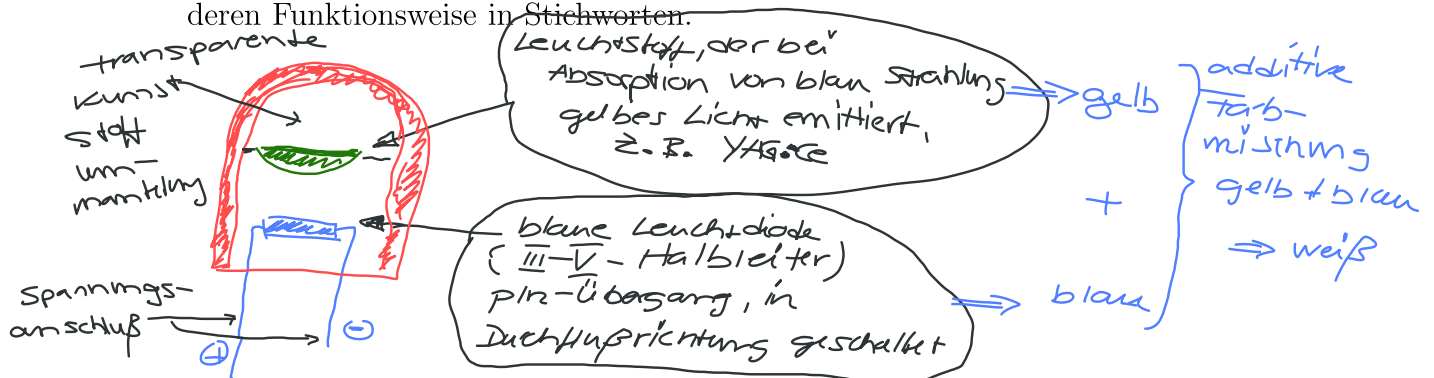 deren Funktionsweise in Stichworten.
transparente
Kunst
stoff
um-
mantelung
Leuchtstoff, der bei
Absorption von blau Strahlung
gelbes Licht emittiert,
z. B. YAG:Ce
blaue Leuchtdiode
(III-V-Halbleiter)
p/n-Übergang, in
Durchflußrichtung geschaltet
Spannungs-
anschluß
+
-
⇒ gelb
+
⇒ blau
additive
Farb-
mischung
gelb + blau
⇒ weiß